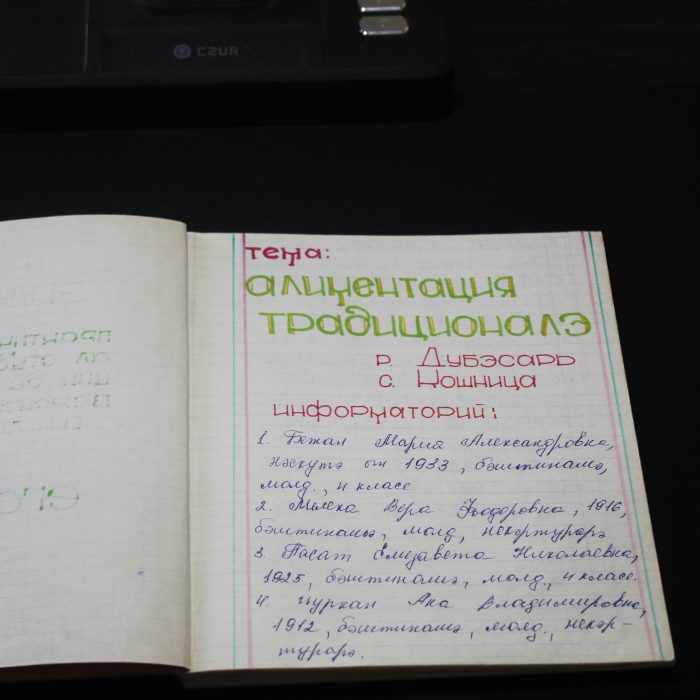 CZUR
тема:
алиментация
традиционалэ
р. Дубэсарь
с. Кошница
информаторий:
1. Мария Александровна,
нэскутэ ын 1933, бэштинашэ,
молд., 4 класе
2. Вера Фёдоровна, 1916,
бэштинашэ, молд., некэртурарэ
3. Пасат Елизавета Николаевна,
1925, бэштинашэ, молд., 4 класе.
4. Цуркан Ана Владимировна,
1912, бэштинашэ, молд., некэр-
турарэ.